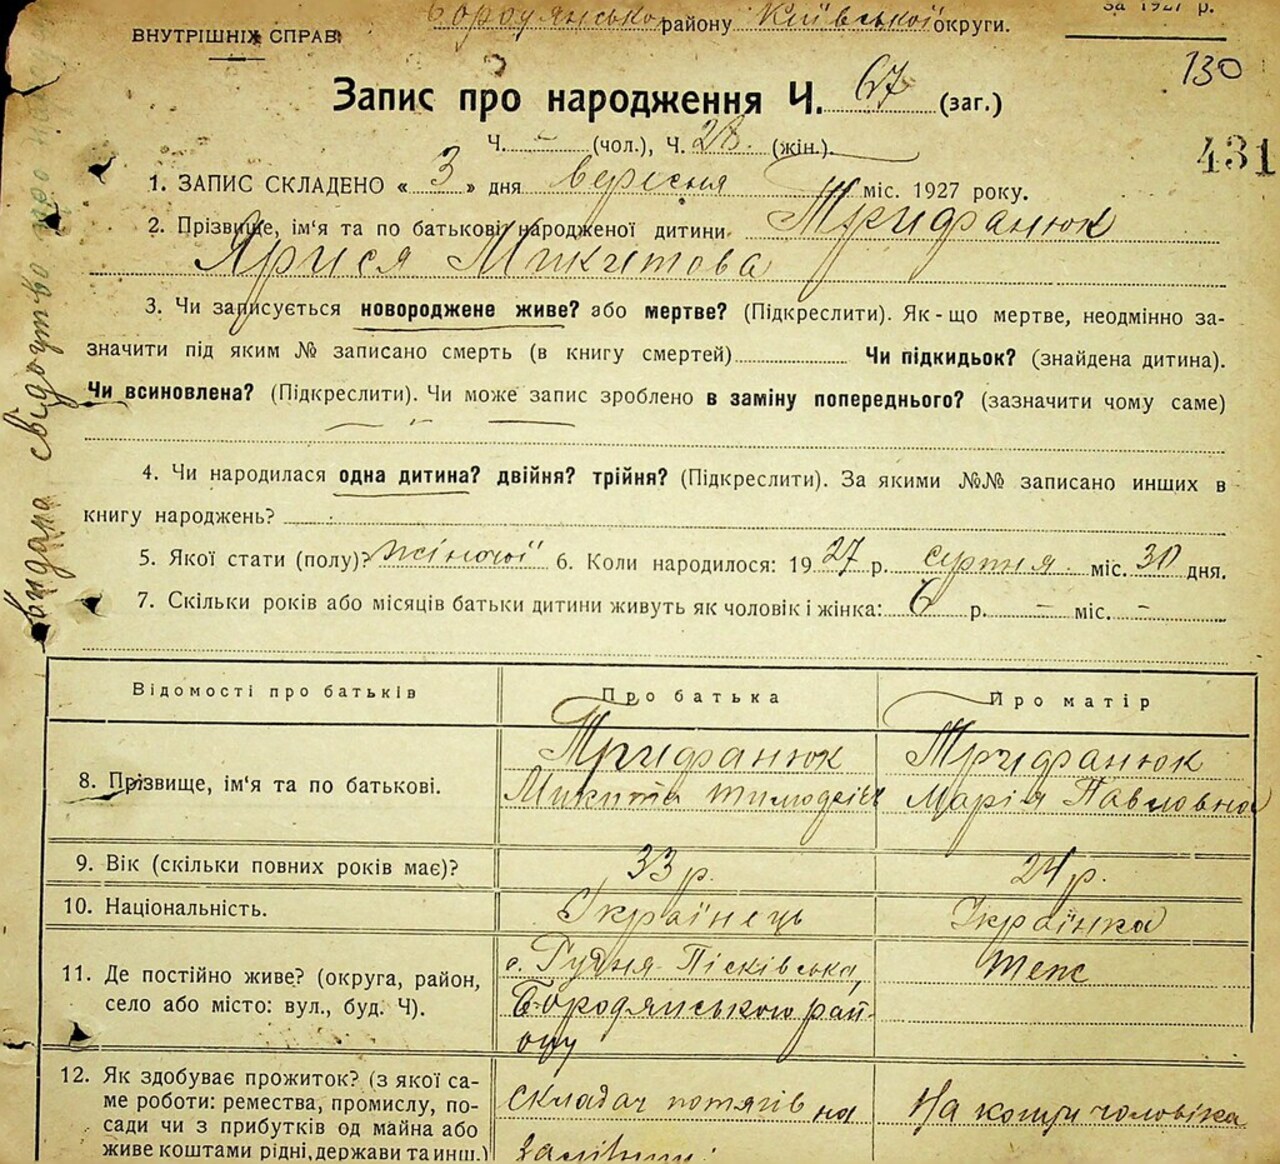 Бородянського району Київської округи.
за 1927 р.
ВНУТРІШНІХ СПРАВ
130
Запис про народження Ч. 67 (заг.)
Ч. – (чол.), Ч. 28. (жін.)
431
1. ЗАПИС СКЛАДЕНО « 3 » дня вересня міс. 1927 року.
2. Прізвище, ім'я та по батькові народженої дитини Трифанюк
Ярися Микитова
3. Чи записується новороджене живе? або мертве? (Підкреслити). Як-що мертве, неодмінно за-
значити під яким № записано смерть (в книгу смертей) Чи підкидьок? (знайдена дитина).
Чи всиновлена? (Підкреслити). Чи може запис зроблено в заміну попереднього? (зазначити чому саме)
4. Чи народилася одна дитина? двійня? трійня? (Підкреслити). За якими №№ записано инших в
книгу народжень?
5. Якої стати (полу)? жіночої 6. Коли народилося: 1927 р. серпня міс. 30 дня.
7. Скільки років або місяців батьки дитини живуть як чоловік і жінка: 6 р. – міс. –
видана свідоцтво
Відомості про батьків Про батька Про матір
8. Прізвище, ім'я та по батькові. Трифанюк Трифанюк
Микита Марія Павловна
9. Вік (скільки повних років має)? 33 р. 24 р.
10. Національність. Українець Українка
11. Де постійно живе? (округа, район, с. Рудня-Пісківська, теж
село або місто: вул., буд. Ч). Бородянського рай-
ону
12. Як здобуває прожиток? (з якої са- складач потягів на На кошти чоловіка
ме роботи: ремества, промислу, по-
сади чи з прибутків од майна або
живе коштами рідні, держави та инш.) залізниці